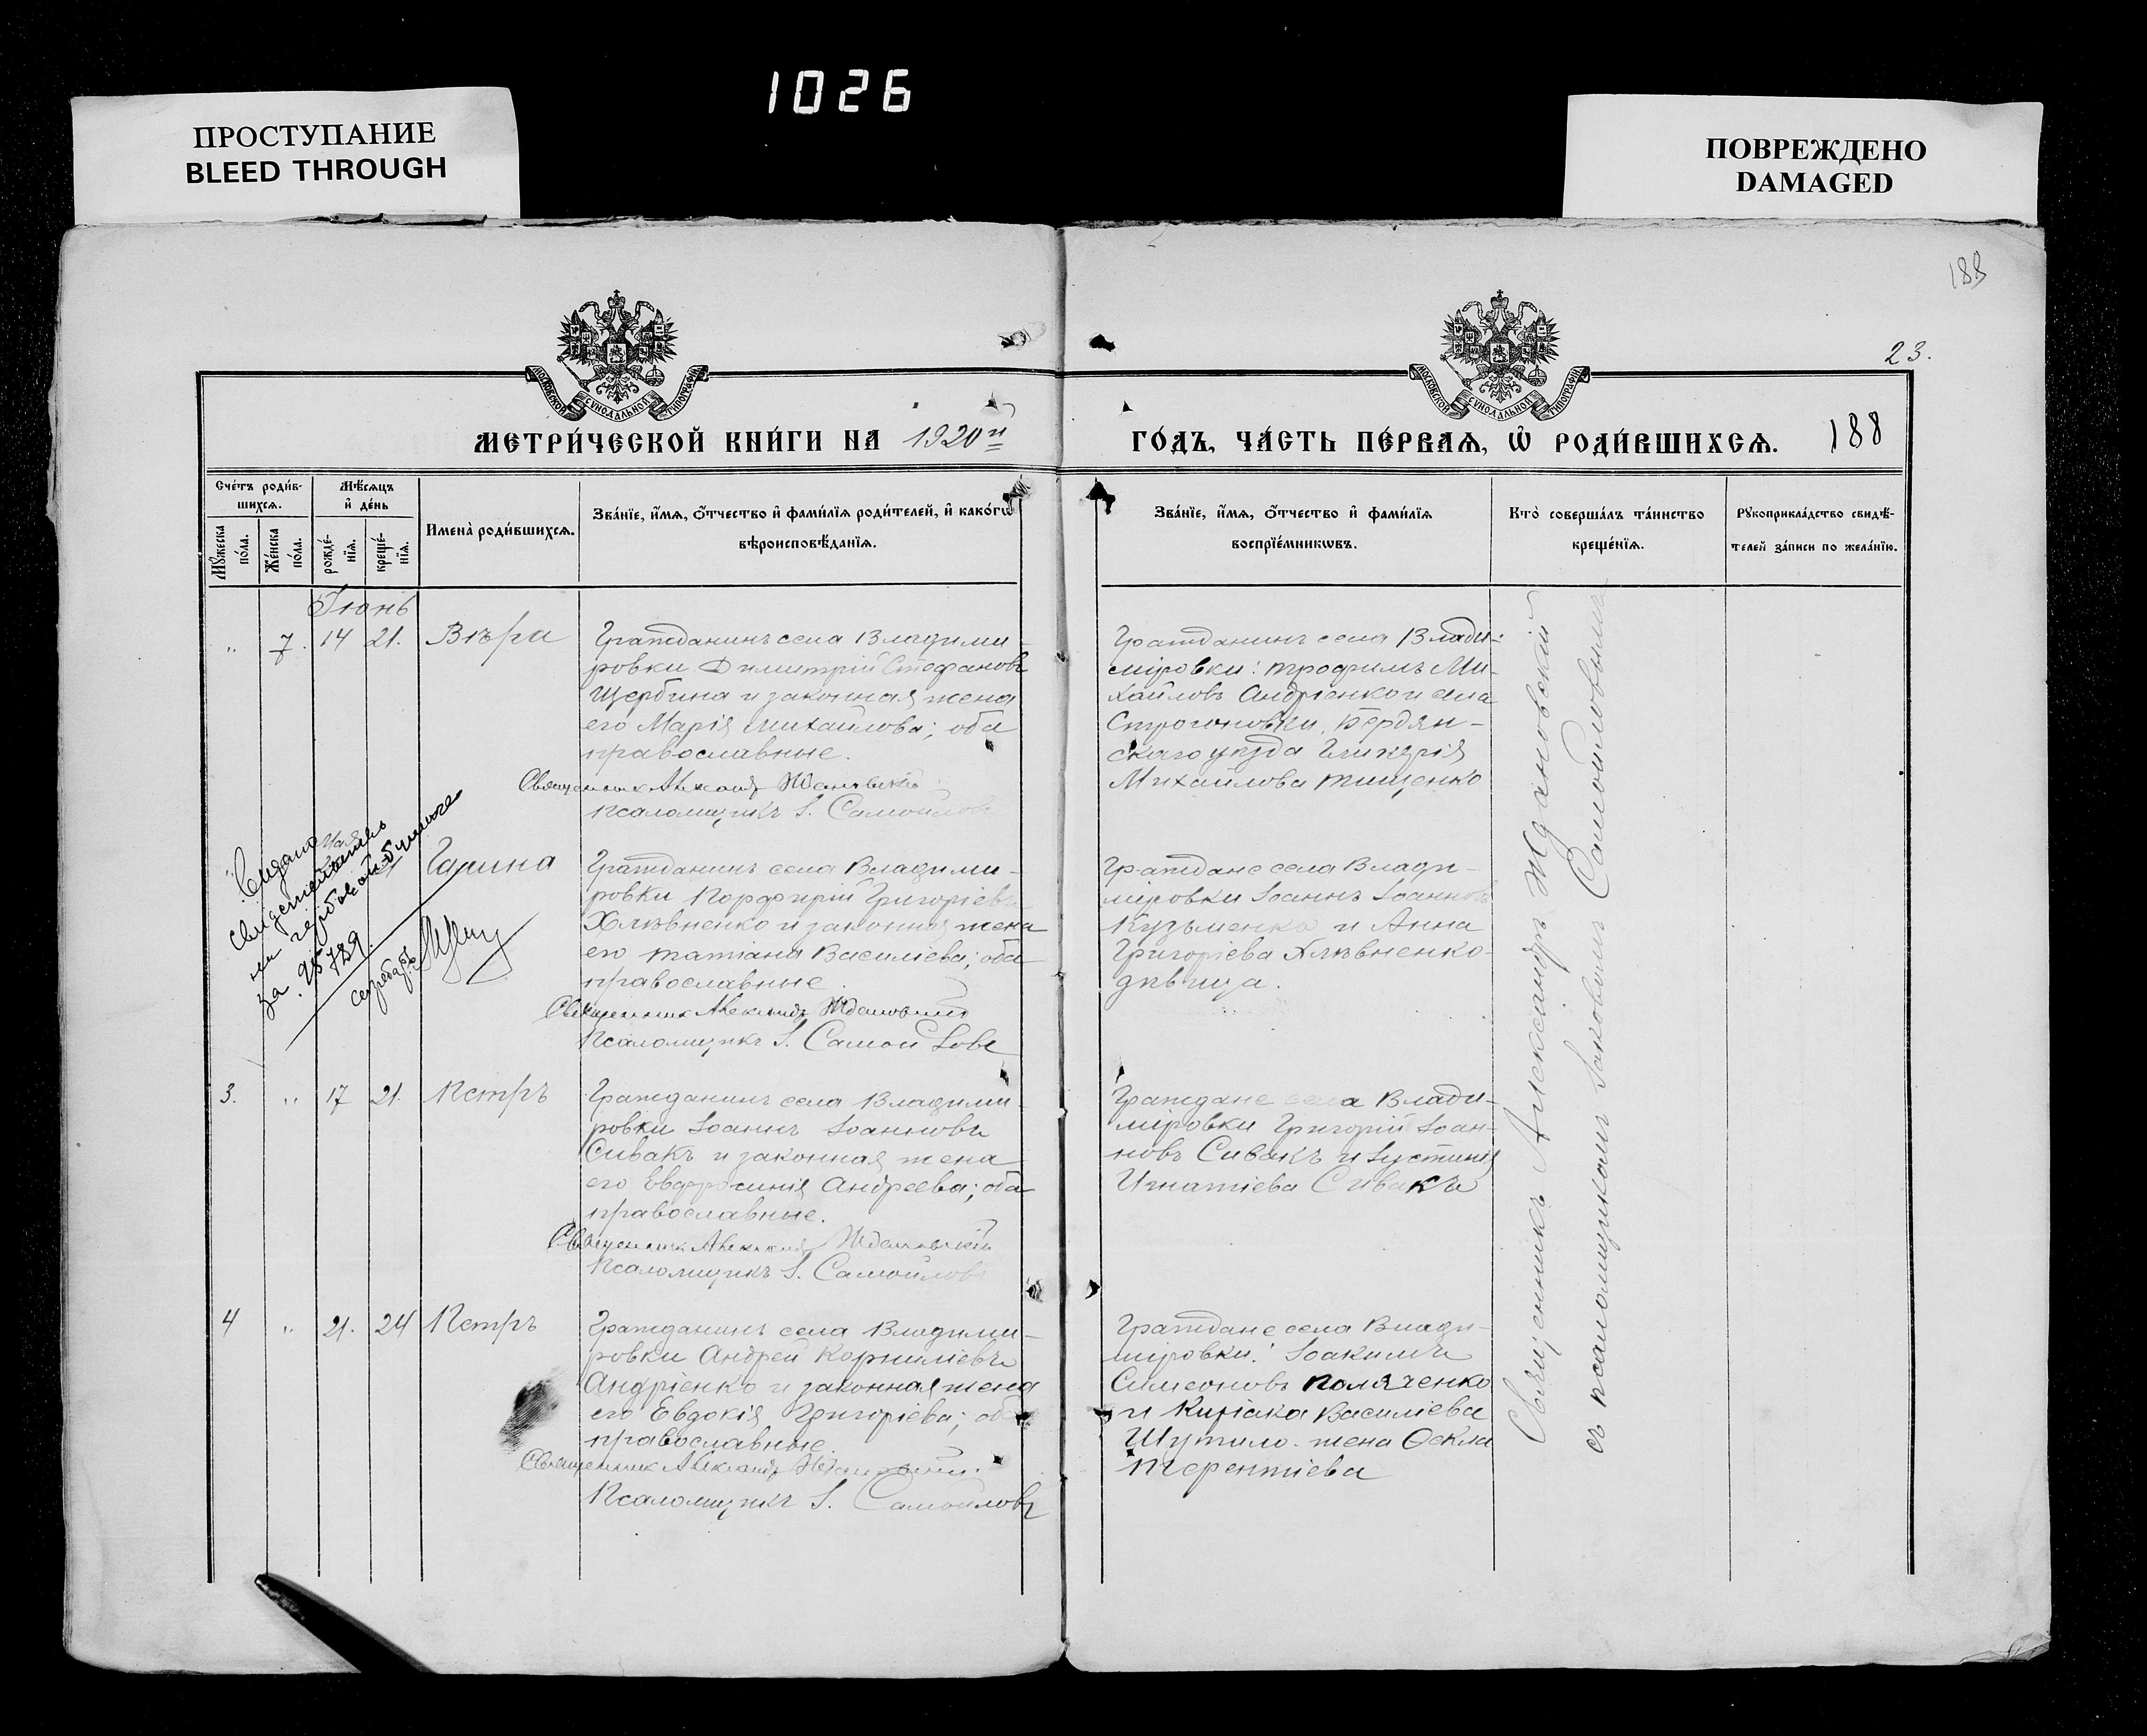 1026
ПРОСТУПАНИЕ
BLEED THROUGH
ПОВРЕЖДЕНО
DAMAGED
188
23.
МОСКОВСКОЙ СѴНОДАЛЬНОЙ ТИПОГРАФІИ
МОСКОВСКОЙ СѴНОДАЛЬНОЙ ТИПОГРАФІИ
МЕТРИ́ЧЕСКОЙ КНИ́ГИ НА 1920й
ГО́ДЪ, ЧА́СТЬ ПЕ́РВАѦ, Ѡ҆ РОДИ́ВШИХСѦ. 188
Сче́тъ роди́в-
шихсѧ.
Мѣ́сѧцъ
и҆ де́нь
Мꙋ́жеска
по́ла.
Же́нска
по́ла.
рожде́-
нїѧ.
креще́-
нїѧ.
Имена̀ роди́вшихсѧ.
Зва́нїе, и҆́мѧ, ѻ҆́тчество и҆ фами́лїѧ роди́телей, и҆ како́гѡ
вѣроисповѣ́данїѧ.
Зва́нїе, и҆́мѧ, ѻ҆́тчество и҆ фами́лїѧ
воспрїе́мникѡвъ.
Кто̀ соверша́лъ та́инство
креще́нїѧ.
Рꙋкоприкла́дство свидѣ́-
телей за́писи по жела́нїю.
Іюнь
„ 7. 14 21. Вѣра
Гражданинъ села Владими-
ровки Димитрій Стефановъ
Щербина и законная жена
его Марія Михайлова; оба
православные.
Священник Александръ Ждановскій
Псаломщикъ І. Самойловъ
Гражданинъ села Влади-
міровки: Трофимъ Ми-
хайловъ Андріенко и села
Строгоновки, Бердян-
скаго уѣзда Гликерія
Михайлова Тищенко
Галина
Гражданинъ села Владими-
ровки Порфирій Григоріевъ
Хлѣвненко и законная жена
его Татіана Василіева; оба
православные.
Священник Александръ Ждановскій
Псаломщикъ І. Самойловъ
Граждане села Влади-
міровки Іоаннъ Іоанновъ
Кузьменко и Анна
Григоріева Хлѣвненко-
дѣвица.
Видано
на гербовой бумаге
за
3. „ 17 21. Петръ
Гражданинъ села Владими-
ровки Іоаннъ Іоанновъ
Сивакъ и законная жена
его Евфросинія Андреева; оба
православные.
Священник Александръ Ждановскій
Псаломщикъ І. Самойловъ
Граждане села Влади-
міровки Григорій Іоан-
новъ Сивакъ и Іустинія
Игнатіева Сивакъ
4 „ 21. 24 Петръ
Гражданинъ села Владими-
ровки Андрей Корниліевъ
Андріенко и законная жена
его Евдокія Григоріева; оба
православные.
Священник Александръ Ждановскій.
Псаломщикъ І. Самойловъ
Граждане села Влади-
міровки: Іоакимъ
Симеоновъ Поляченко
и Киріака Василіева
Шутило. жена Ѳекла
Терентіева
Священникъ Александръ Ждановскій
съ псаломщикомъ Іаковомъ Самойловымъ